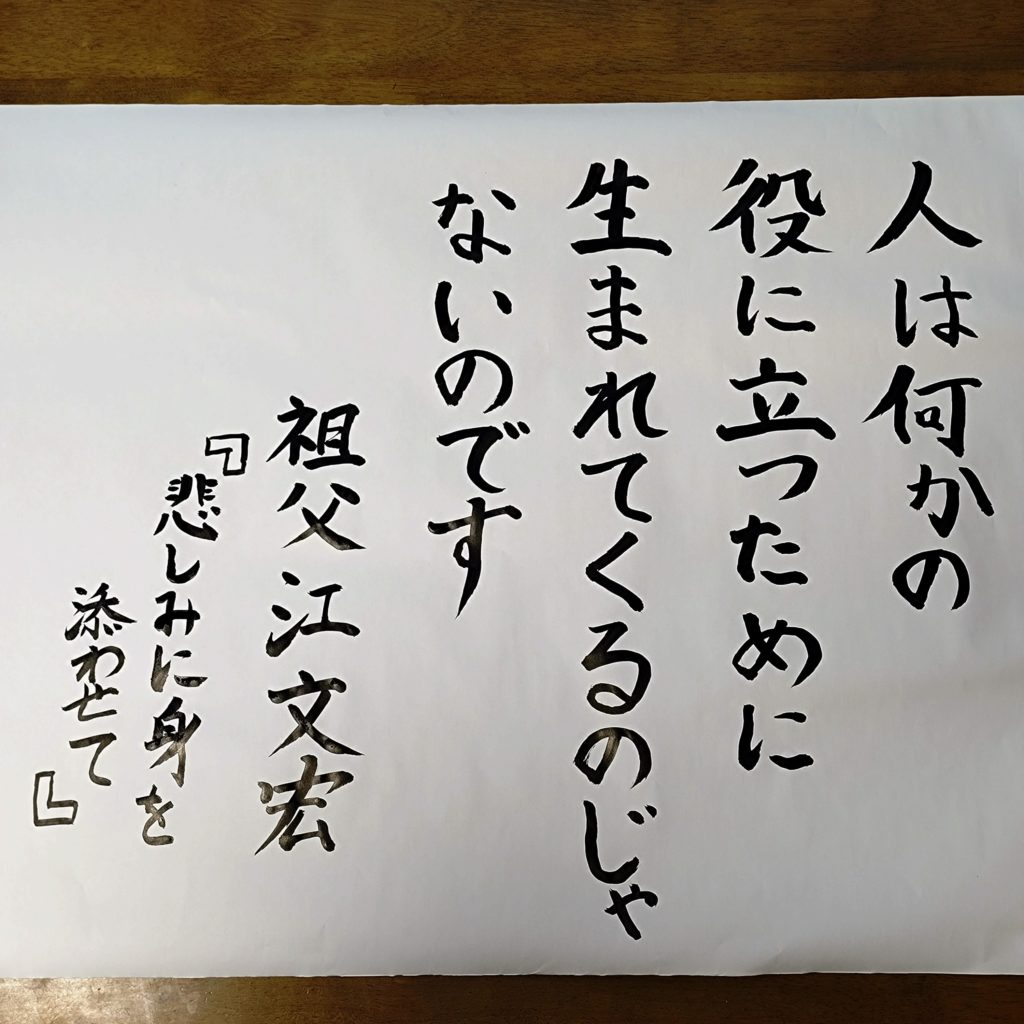 人は何かの
役に立つために
生まれてくるのじゃ
ないのです
祖父江文宏
『悲しみに身を
添わせて』